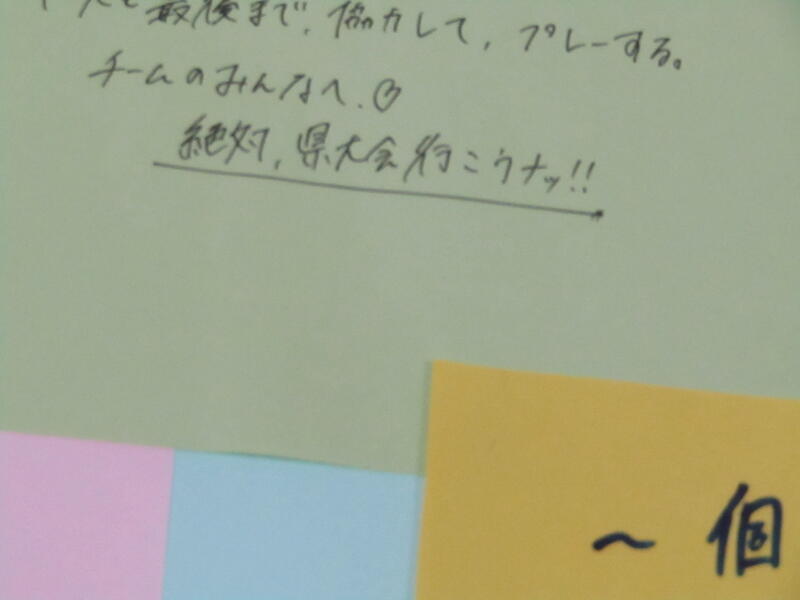 最後まで、協力して、プレーする。
チームのみんなへ.♡
絶対、県大会行こうナッ!!
〜個